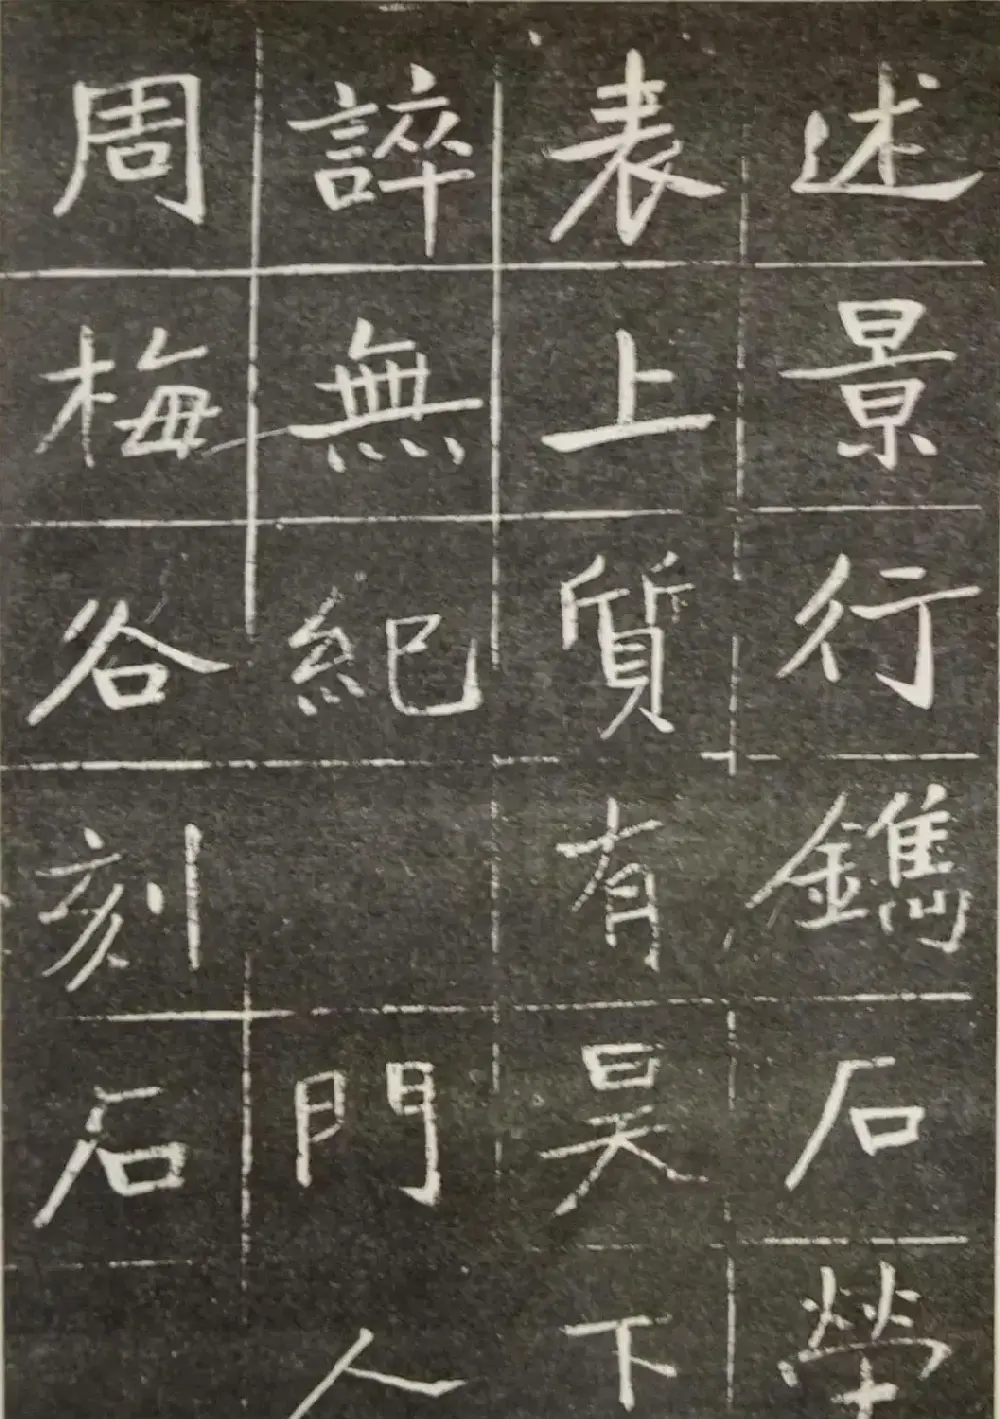 述景行鐫石
表上質有昊下
誶無紀門人
周梅谷刻石